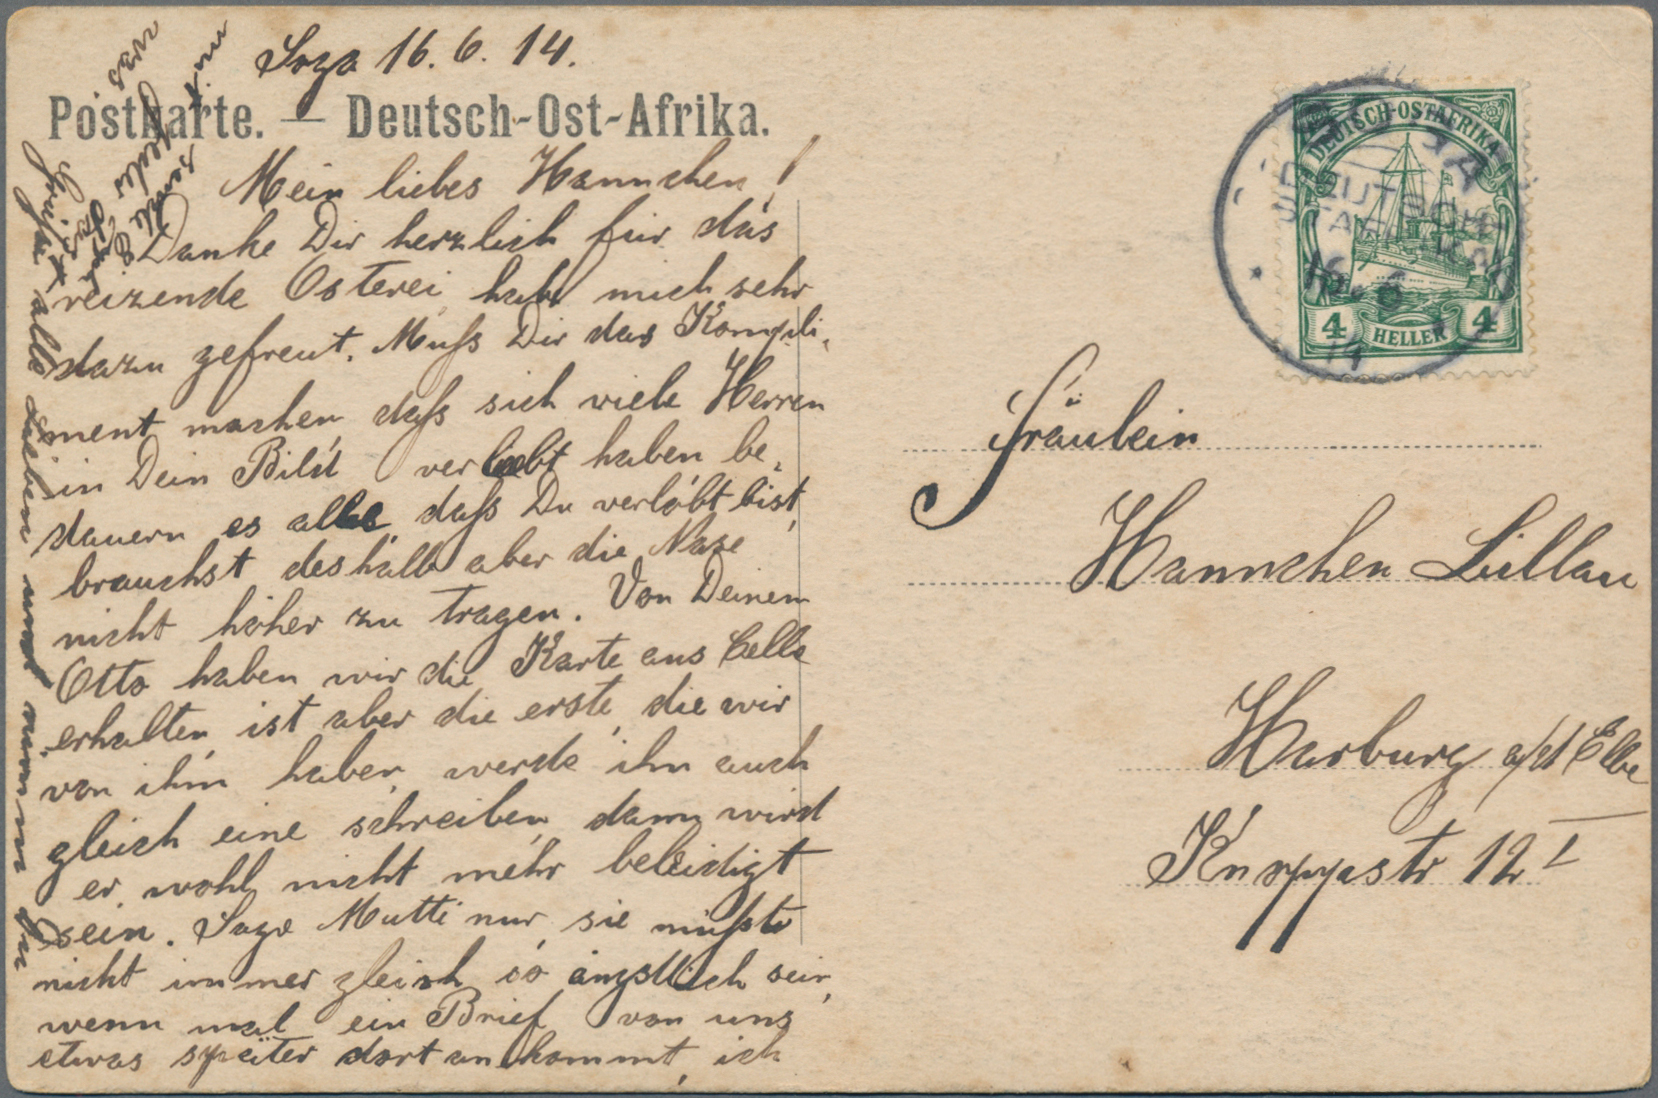 Soga 16. 6. 14.
Postkarte. — Deutsch-Ost-Afrika.
Mein liebes Hannchen!
Danke Dir herzlich für das
reizende Osterei habe mich sehr
dazu gefreut. Muß Dir das Kompli-
ment machen daß sich viele Herren
in Dein Bild verliebt haben be-
dauern es alle daß Du verlobt bist,
brauchst deshalb aber die Nase
nicht höher zu tragen. Von Deinem
Otto haben wir die Karte aus Celle
erhalten, ist aber die erste, die wir
von ihm haben, werde ihm auch
gleich eine schreiben, dann wird
er wohl nicht mehr beleidigt
sein. Sage Mutti nur, sie müßte
nicht immer gleich so ängstlich sein,
wenn mal ein Brief von uns
etwas später dort ankommt, ich
Grüße alle Lieben und nimm Du
DEUTSCH-OSTAFRIKA
4 HELLER 4
Fräulein
Hannchen Lillau
Harburg a/d Elbe
Knoppstr 12 I